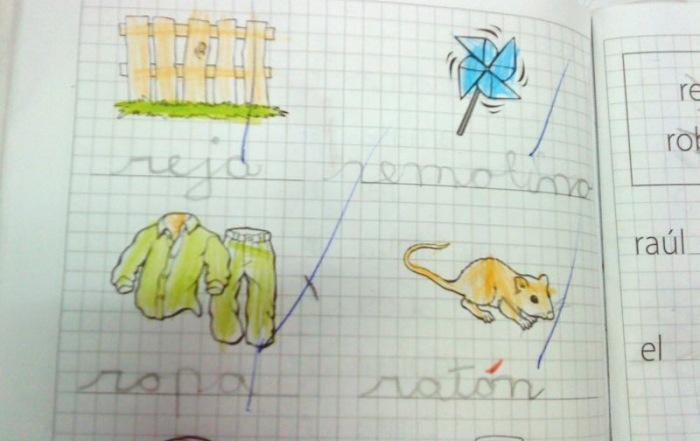 reja
remolino
ropa
ratón
raúl
el